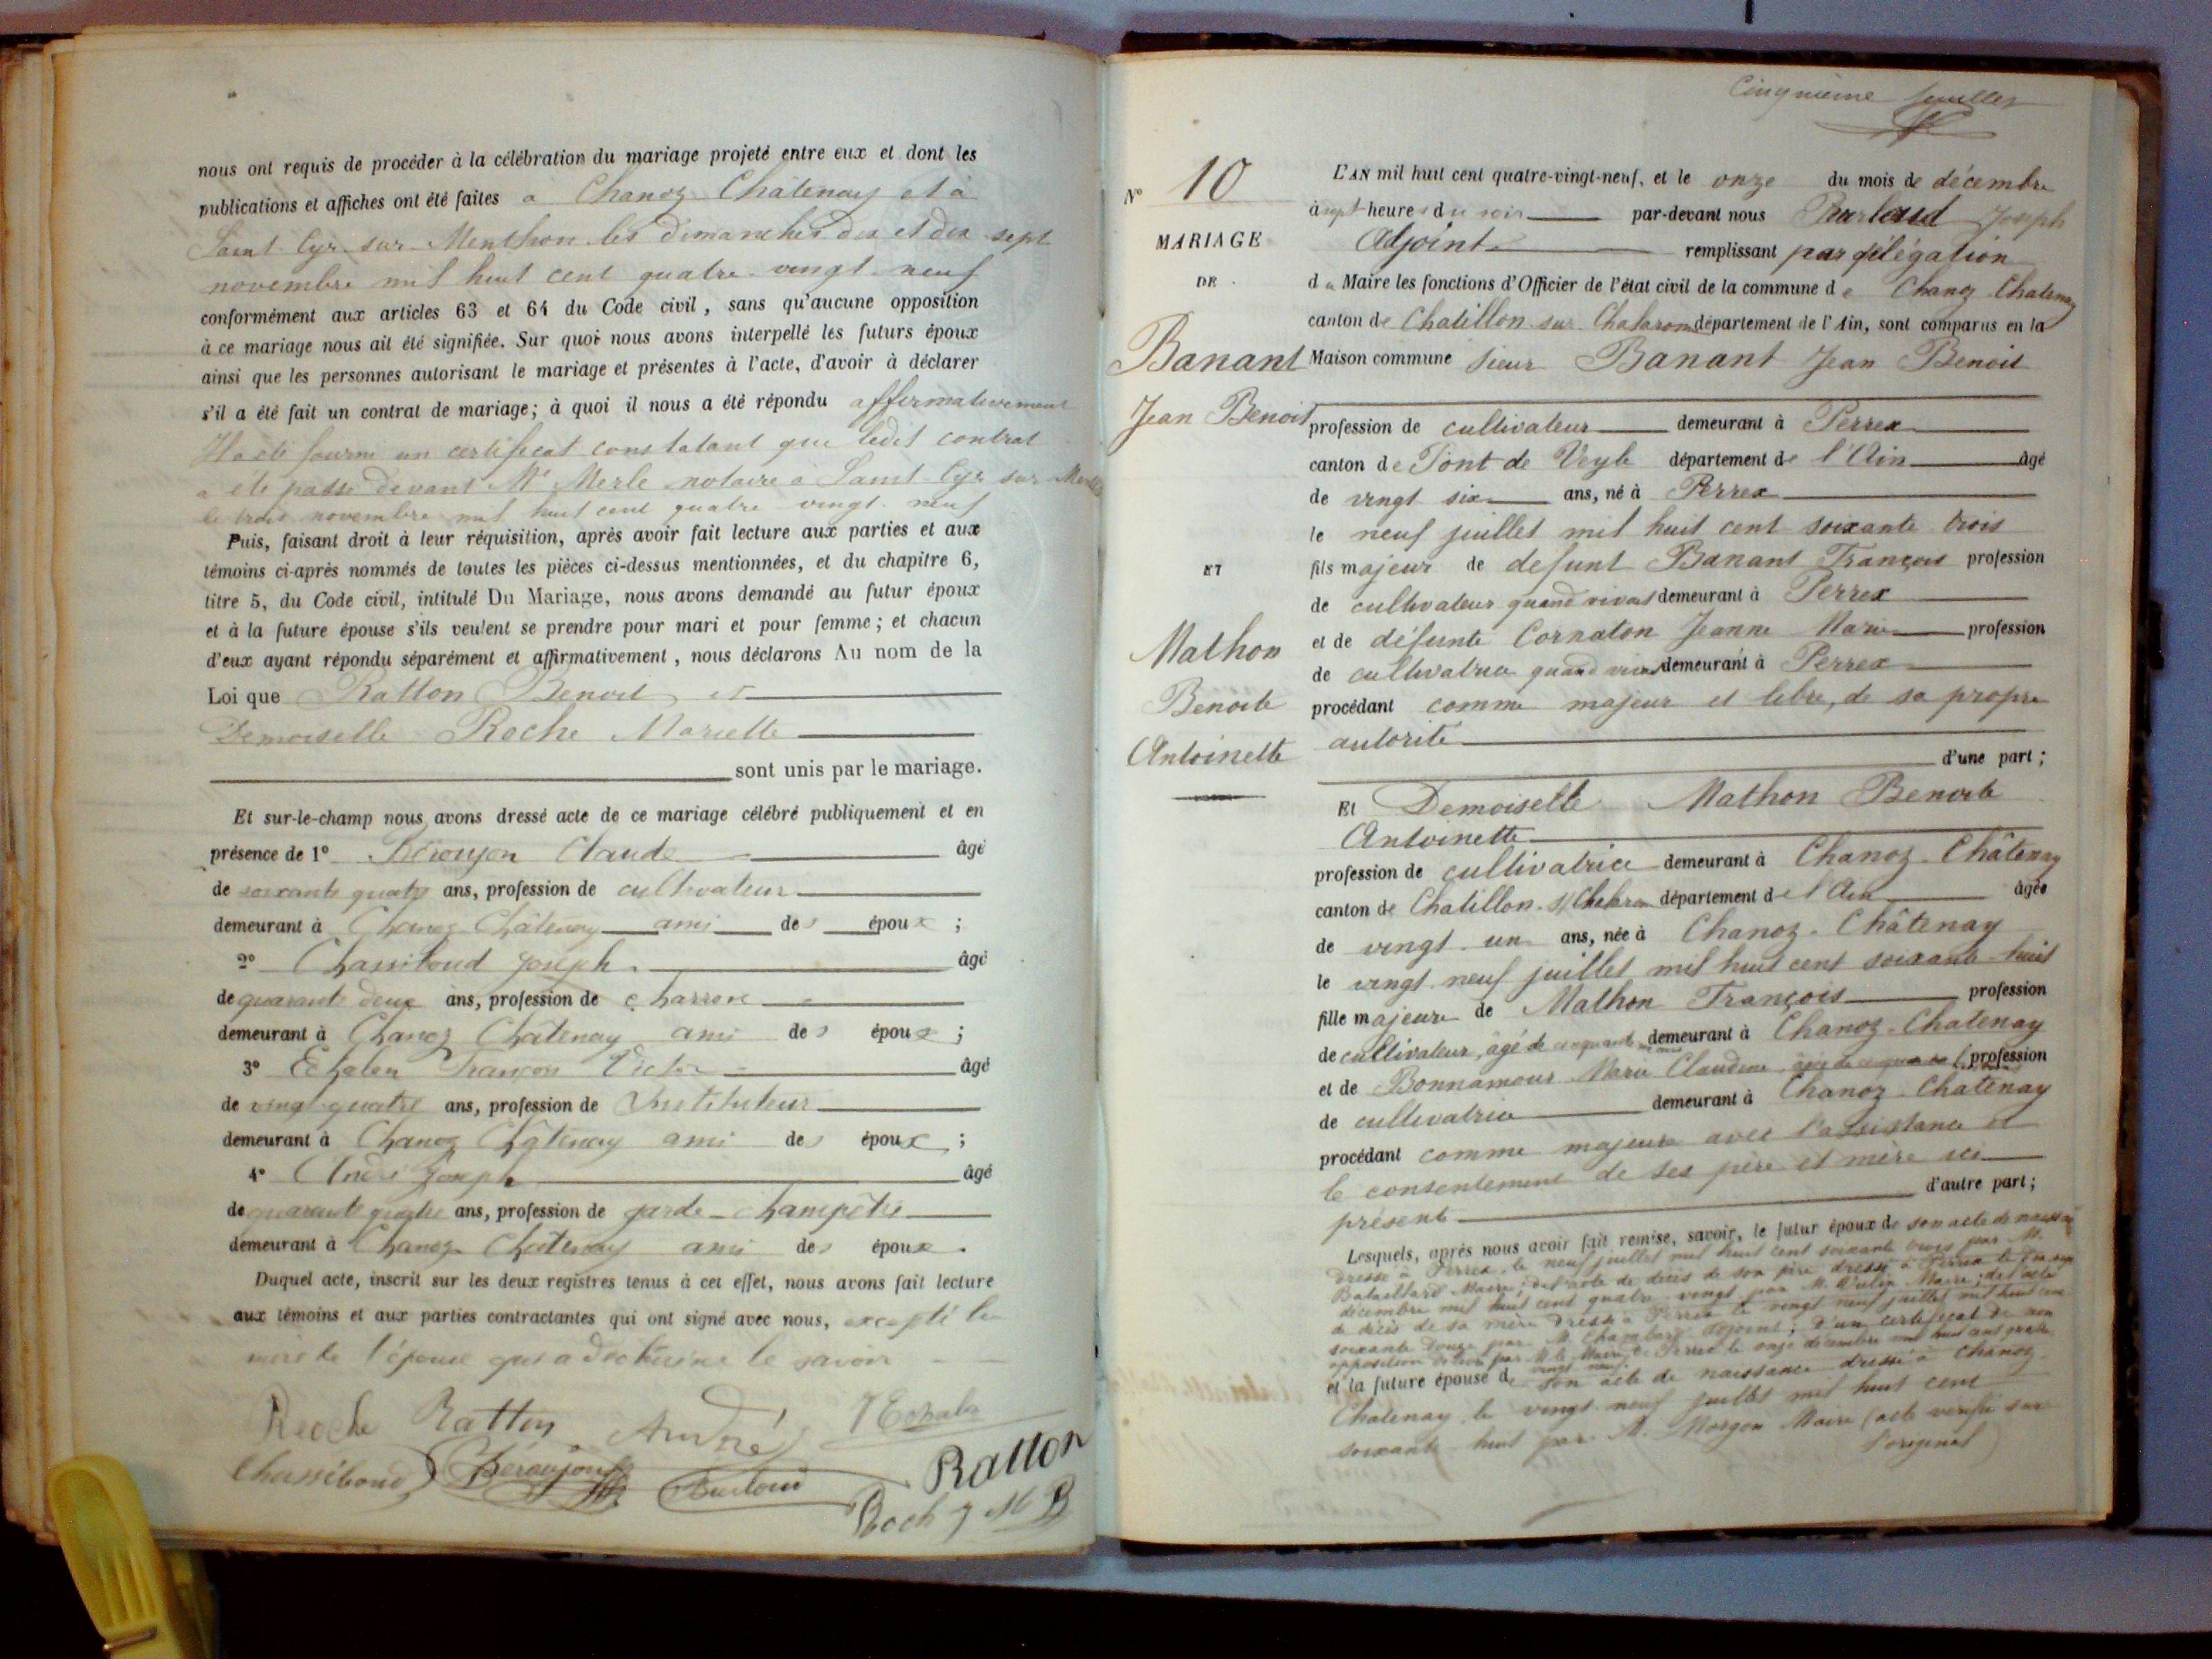 nous ont requis de procéder à la célébration du mariage projeté entre eux et dont les
publications et affiches ont été faites a Chanoz Châtenay et à
Saint Cyr sur Menthon les dimanches dix et dix sept
novembre mil huit cent quatre vingt neuf
conformément aux articles 63 et 64 du Code civil, sans qu'aucune opposition
à ce mariage nous ait été signifiée. Sur quoi nous avons interpellé les futurs époux
ainsi que les personnes autorisant le mariage et présentes à l'acte, d'avoir à déclarer
s'il a été fait un contrat de mariage; à quoi il nous a été répondu affirmativement
Il a été fourni un certificat constatant que ledit contrat
a été passé devant Me Merle notaire a Saint Cyr sur
le trois novembre mil huit cent quatre vingt neuf
Puis, faisant droit à leur réquisition, après avoir fait lecture aux parties et aux
témoins ci-après nommés de toutes les pièces ci-dessus mentionnées, et du chapitre 6,
titre 5, du Code civil, intitulé Du Mariage, nous avons demandé au futur époux
et à la future épouse s'ils veulent se prendre pour mari et pour femme; et chacun
d'eux ayant répondu séparément et affirmativement, nous déclarons Au nom de la
Loi que Ratton Benoit et
Demoiselle Roche Mariette
sont unis par le mariage.
Et sur-le-champ nous avons dressé acte de ce mariage célébré publiquement et en
présence de 1° Béroujon Claude âgé
de soixante quatre ans, profession de cultivateur
demeurant à Chanoz Châtenay ami des époux ;
2° Chassiboud Joseph âgé
de quarante deux ans, profession de charron
demeurant à Chanoz Châtenay ami des époux ;
3° François Victor âgé
de vingt quatre ans, profession de Instituteur
demeurant à Chanoz Châtenay ami des époux ;
4° André Joseph âgé
de quarante quatre ans, profession de garde-champêtre
demeurant à Chanoz Chatenay ami des époux.
Duquel acte, inscrit sur les deux registres tenus à cet effet, nous avons fait lecture
aux témoins et aux parties contractantes qui ont signé avec nous, excepté la
mère de l'épouse qui a déclaré ne le savoir
Roche Ratton André
Chassiboud Béroujon Burtoud Ratton
Roch J M B
Cinquième feuillet
N° 10
MARIAGE
DE
Banant
Jean Benoit
ET
Mathon
Benoite
Antoinette
L'AN mil huit cent quatre-vingt-neuf, et le onze du mois de décembre
à sept heures du soir par-devant nous Joseph
Adjoint remplissant par délégation
du Maire les fonctions d'Officier de l'état civil de la commune de Chanoz Chatenay
canton de Chatillon sur Chalaronne département de l'Ain, sont comparus en la
Maison commune Sieur Banant Jean Benoit
profession de cultivateur demeurant à Perrex
canton de Pont de Veyle département de l'Ain âgé
de vingt six ans, né à Perrex
le neuf juillet mil huit cent soixante trois
fils majeur de defunt Banant François profession
de cultivateur quand vivait demeurant à Perrex
et de défunte Cornaton Jeanne Marie profession
de cultivatrice quand vivait demeurant à Perrex
procédant comme majeur et libre, de sa propre
autorité
d'une part ;
Et Demoiselle Mathon Benoite
Antoinette
profession de cultivatrice demeurant à Chanoz-Châtenay
canton de Chatillon s/ Chalaron département de l'Ain âgée
de vingt un ans, née à Chanoz-Châtenay
le vingt neuf juillet mil huit cent soixante huit
fille majeure de Mathon François profession
de cultivateur, âgé de cinquante demeurant à Chanoz-Chatenay
et de Bonnamour Marie Claudine profession
de cultivatrice demeurant à Chanoz-Chatenay
procédant comme majeure avec l'assistance et
le consentement de ses père et mère ici
présents d'autre part ;
Lesquels, après nous avoir fait remise, savoir, le futur époux de son acte de naissance
dressé à Perrex le neuf juillet mil huit cent soixante trois par M.
Bataillard Maire; de l'acte de décès de son père dressé à Perrex le
décembre mil huit cent quatre vingt par M. Maire; de l'acte
de décès de sa mère dressé à Perrex le vingt neuf juillet mil huit cent
soixante douze par M. Chambard adjoint; d'un certificat de non
opposition délivré par M. le Maire de Perrex le onze décembre mil huit cent quatre
vingt neuf.
et la future épouse de son acte de naissance dressé à Chanoz
Chatenay le vingt neuf juillet mil huit cent
soixante huit par M. Morgon Maire (acte vérifié sur
l'original)